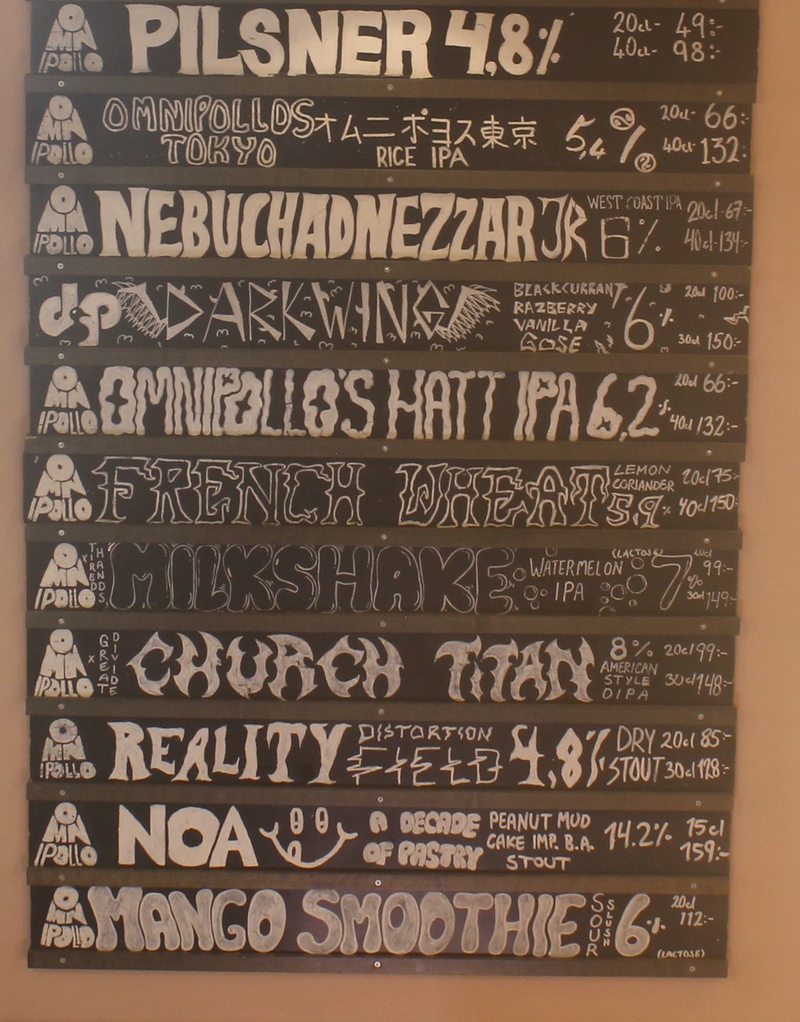 OMNIPOLLO PILSNER 4,8% 20cl- 49:-
40cl- 98:-
OMNIPOLLO OMNIPOLLOS TOKYO オムニポヨス東京 RICE IPA 5,4% 20cl- 66:-
40cl- 132:-
OMNIPOLLO NEBUCHADNEZZAR JR WEST COAST IPA 6% 20cl-67:-
40cl-134:-
dp DARKWING BLACKCURRANT
RAZBERRY
VANILLA
GOSE 6% 20cl 100:-
30cl 150:-
OMNIPOLLO OMNIPOLLO'S HATT IPA 6,2% 20cl 66:-
40cl 132:-
OMNIPOLLO FRENCH WHEAT LEMON
CORIANDER
5,9% 20cl 75:-
40cl 150:-
OMNIPOLLO x TIRED HANDS MILKSHAKE WATERMELON
IPA (LACTOSE) 7% 99:-
30cl 149:-
OMNIPOLLO x GREAT DIVIDE CHURCH TITAN 8%
AMERICAN
STYLE
DIPA 20cl 99:-
30cl 148:-
OMNIPOLLO REALITY DISTORTION
FIELD 4,8% DRY
STOUT 20cl 85:-
30cl 128:-
OMNIPOLLO NOA A DECADE
OF PASTRY PEANUT MUD
CAKE IMP. B.A.
STOUT 14.2% 15cl
159:-
OMNIPOLLO MANGO SMOOTHIE SOUR SLUSH 6% 20cl
112:-
(LACTOSE)